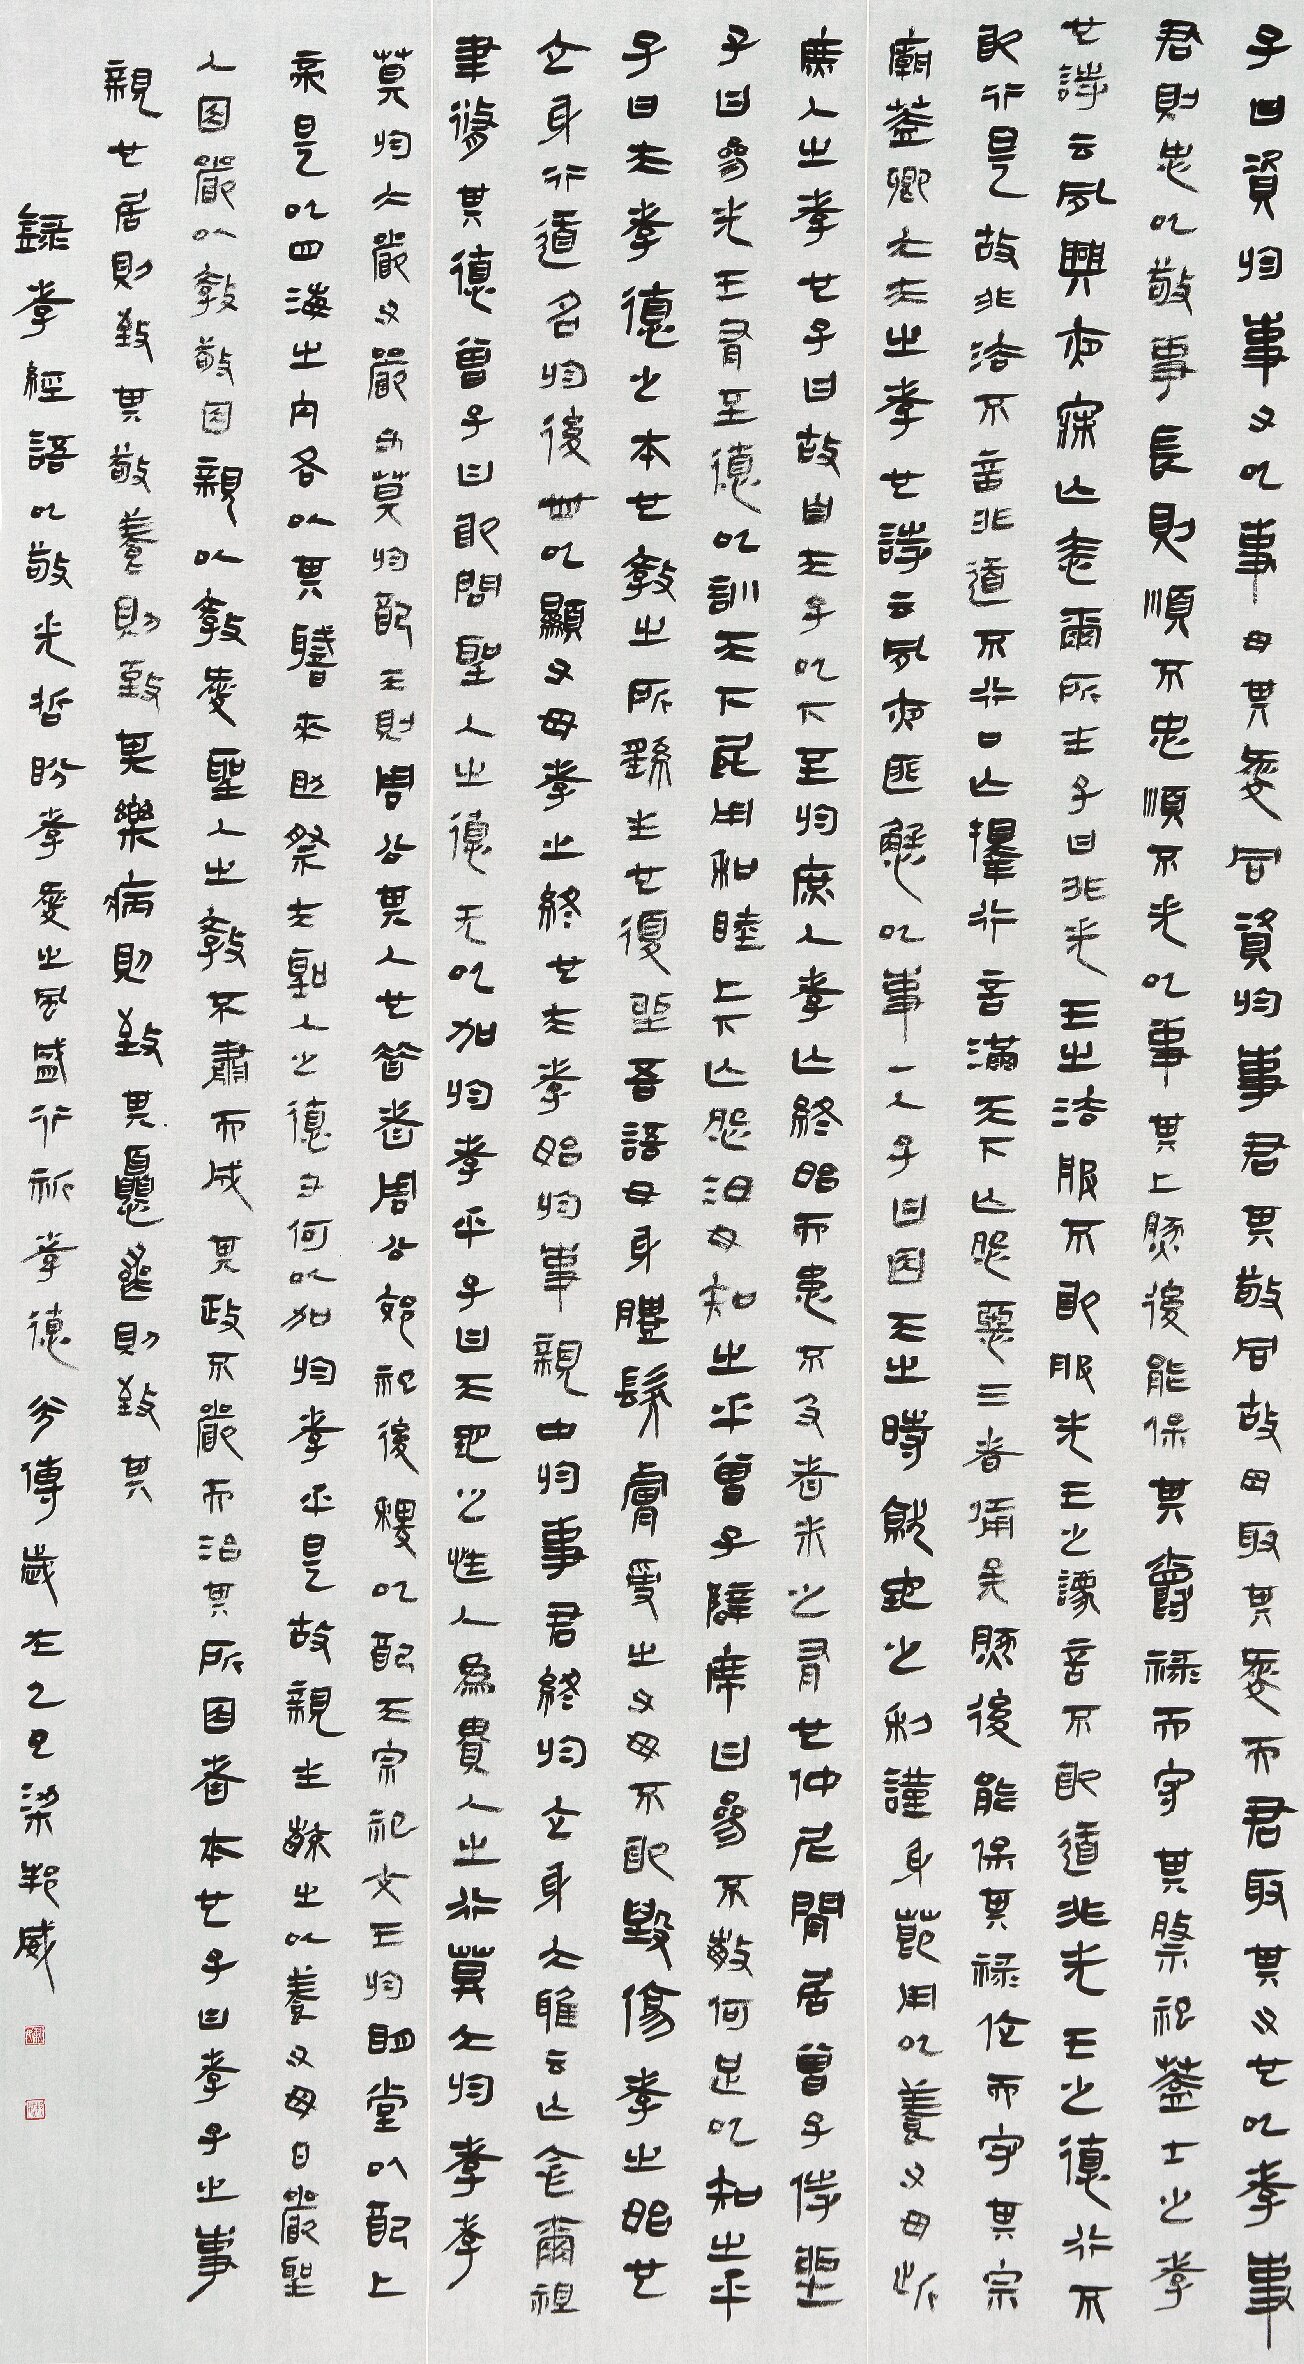 子曰資於事父以事母其愛同資於事君其敬同故母取其愛而君取其父也以孝事
君則忠以敬事長則順不忠順不失以事其上然後能保其爵祿而守其祭祀蓋士之孝
也詩云夙興夜寐亡忝爾所生子曰非先王之法服不敢服先王之法言不敢道非先王之德行不
敢行是故非法不言非道不行口亡擇行言滿天下亡怨惡三者備矣然後能保其祿位而守其宗
廟蓋卿大夫之孝也詩云夙夜匪懈以事一人子曰因天之時就地之利謹身節用以養父母此
庶人之孝也子曰故自天子以下至於庶人孝亡終始而患不及者未之有也仲尼閒居曾子侍坐
子曰參先王有至德以訓天下民用和睦上下亡怨女知之乎曾子辟席曰參不敏何足以知之乎
子曰夫孝德之本也教之所繇生也復坐吾語女身體髮膚受之父母不敢毀傷孝之始也
立身行道名於後世以顯父母孝之終也夫孝始於事親中於事君終於立身大雅云亡念爾祖
聿修其德曾子曰敢問聖人之德亡以加於孝乎子曰天地之性人為貴人之行莫大於孝孝
莫於大嚴父嚴父莫於配天則周公其人也昔者周公郊祀後稷以配天宗祀文王於明堂以配上
帝是以四海之內各以其職來助祭夫聖人之德又何以加於孝乎是故親生毓之以養父母日嚴聖
人因嚴以教敬因親以教愛聖人之教不肅而成其政不嚴而治其所因者本也子曰孝子之事
親也居則致其敬養則致其樂病則致其憂喪則致其
錄孝經語以敬先哲盼孝愛之風盛行祈孝德傳歲在乙巳梁邦威